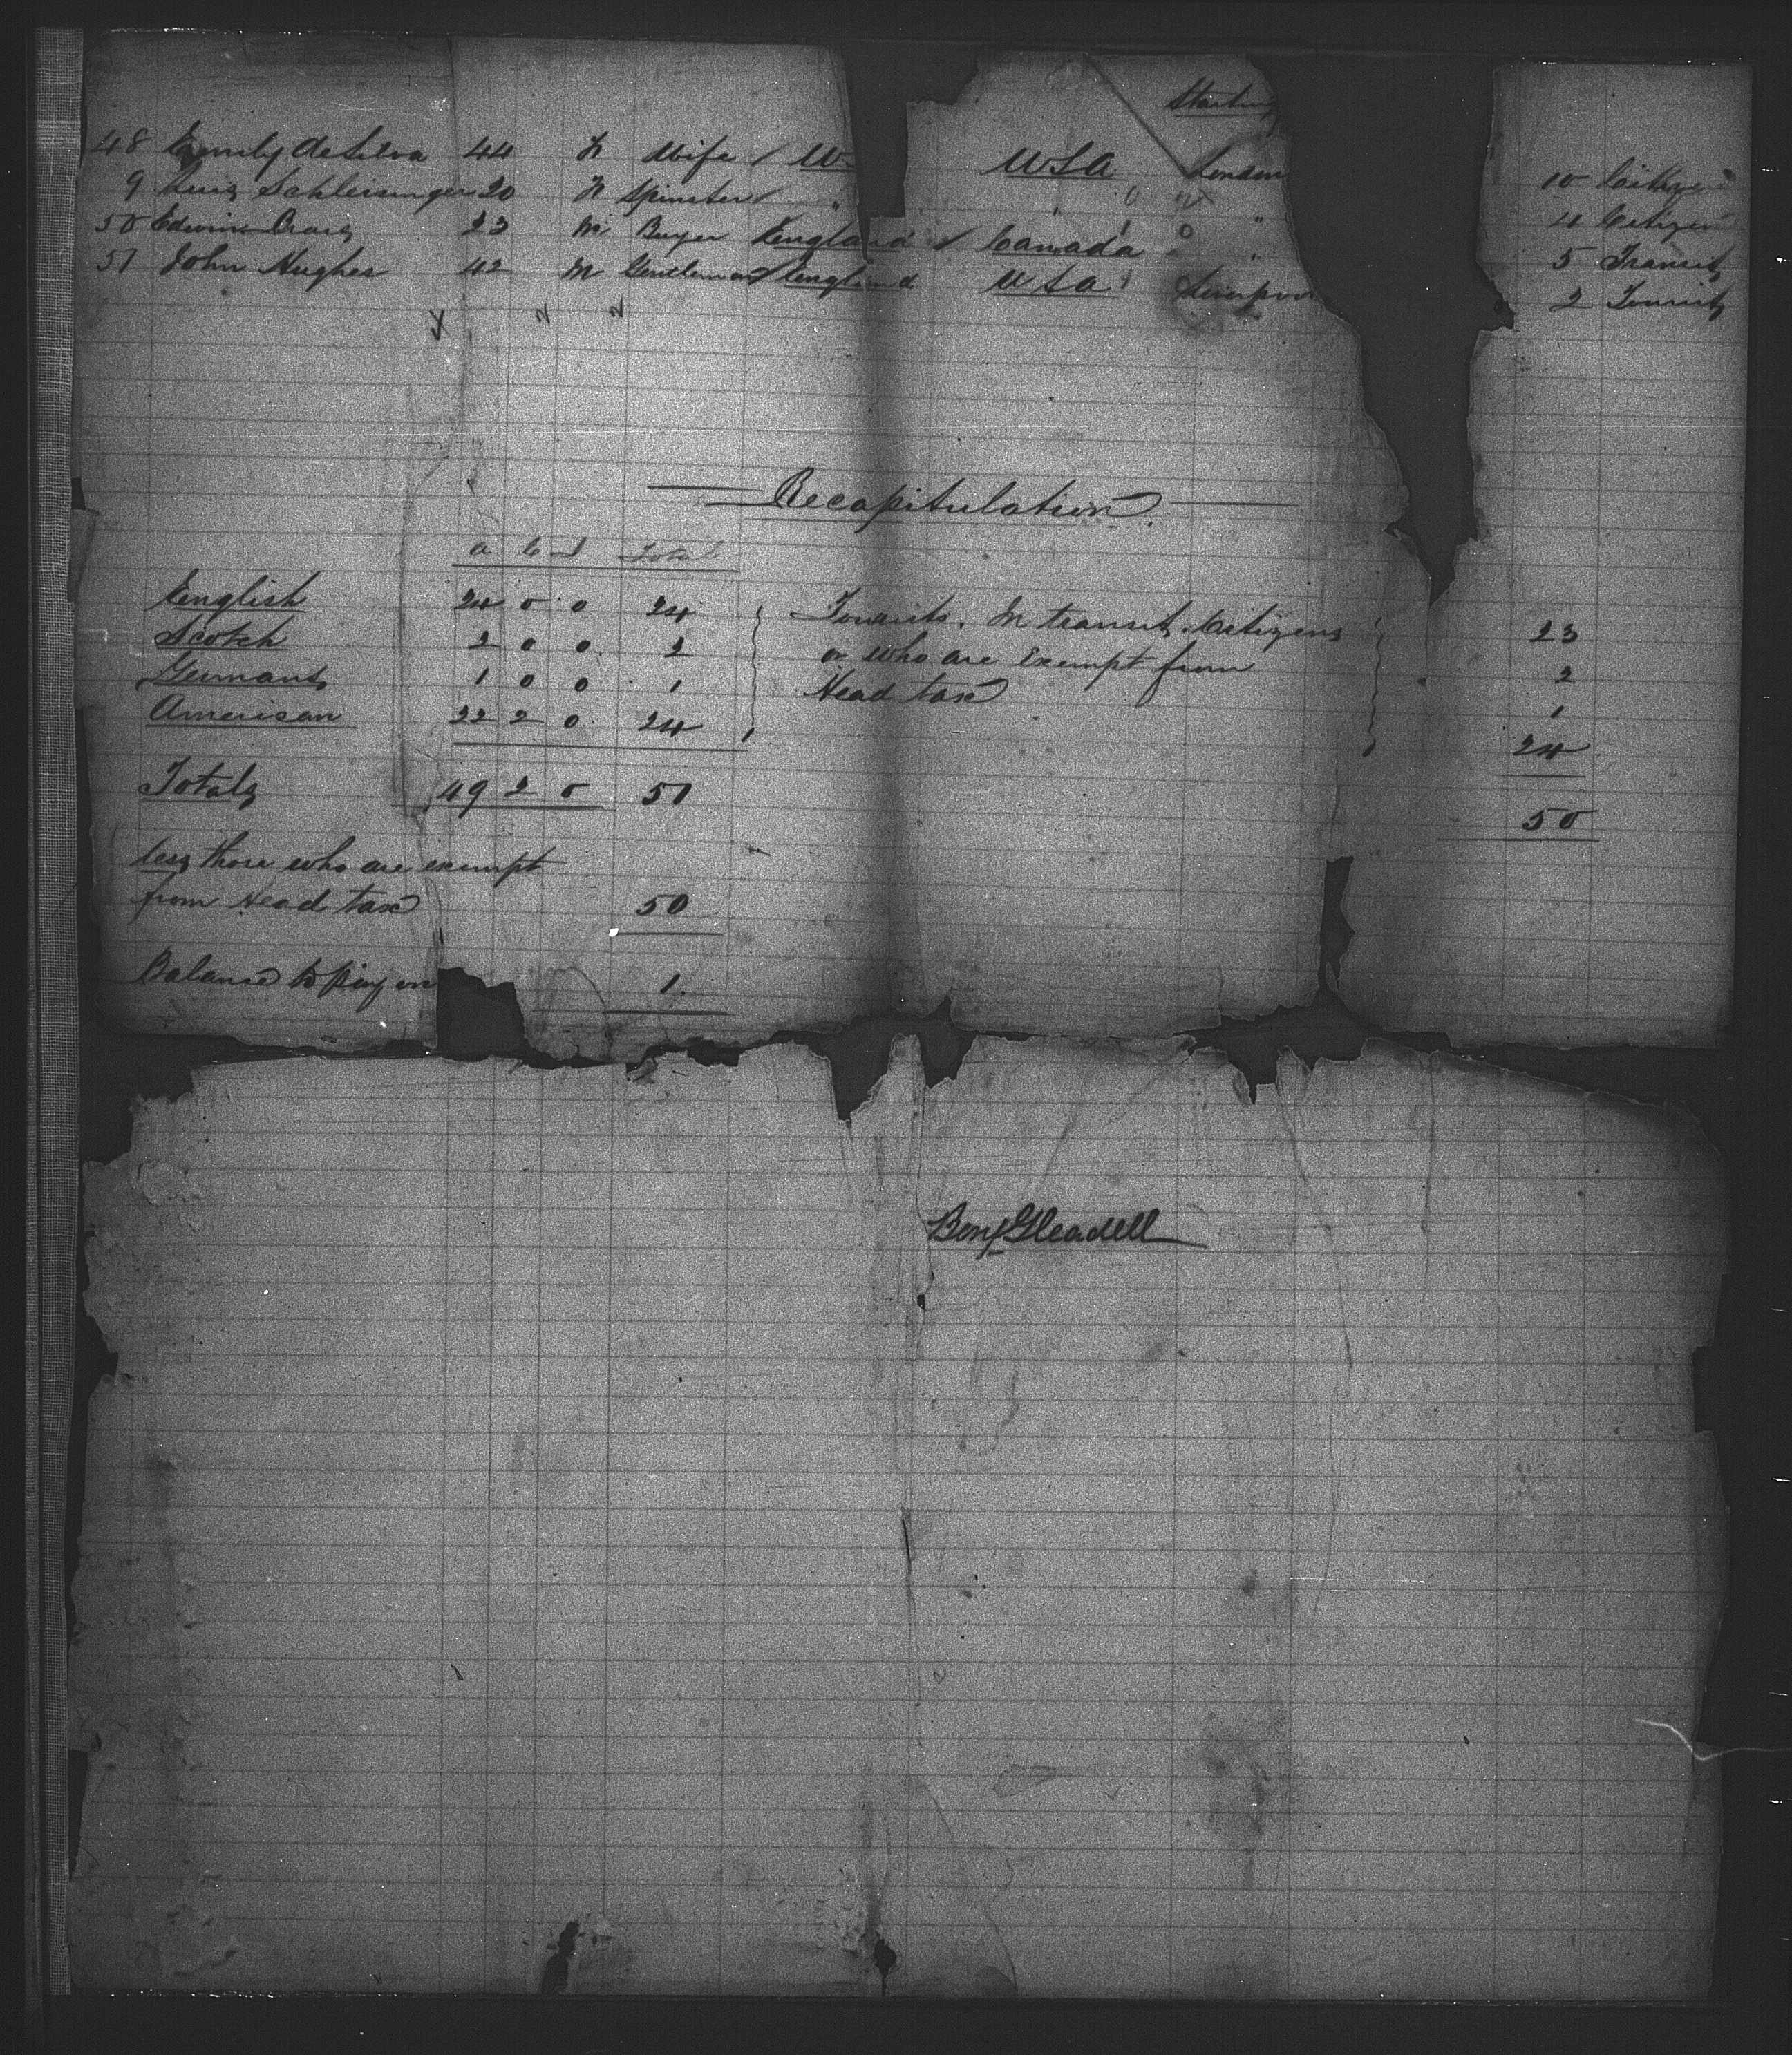 Starting
48 Emily de Silva 44 F Wife / U USA London 10 Citizen
9 Schleisinger 20 F Spinster / " " " 4 Citizen
50 Edwin 23 M Buyer England / Canada " 5 Transit
51 John Hughes 42 M Gentleman England USA Liverpoo 2 Tourist
Recapitulation.
a c I Total
English 24 0 0 24 Tourists, In transit, Citizens 23
Scotch 2 0 0 2 or who are Exempt from 2
Germans 1 0 0 1 Head tax 1
American 22 2 0 24 24
Totals 49 2 0 51 50
less those who are exempt
from Head tax 50
Balance to pay on 1.
Benj Gleadell